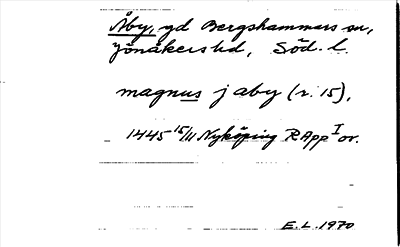 Åby, gd Bergshammars sn,
Jönåkers hd, Söd. l.
magnus j aby (r. 15),
1445 15/11 Nyköping RApp I or.
E.L. 1970